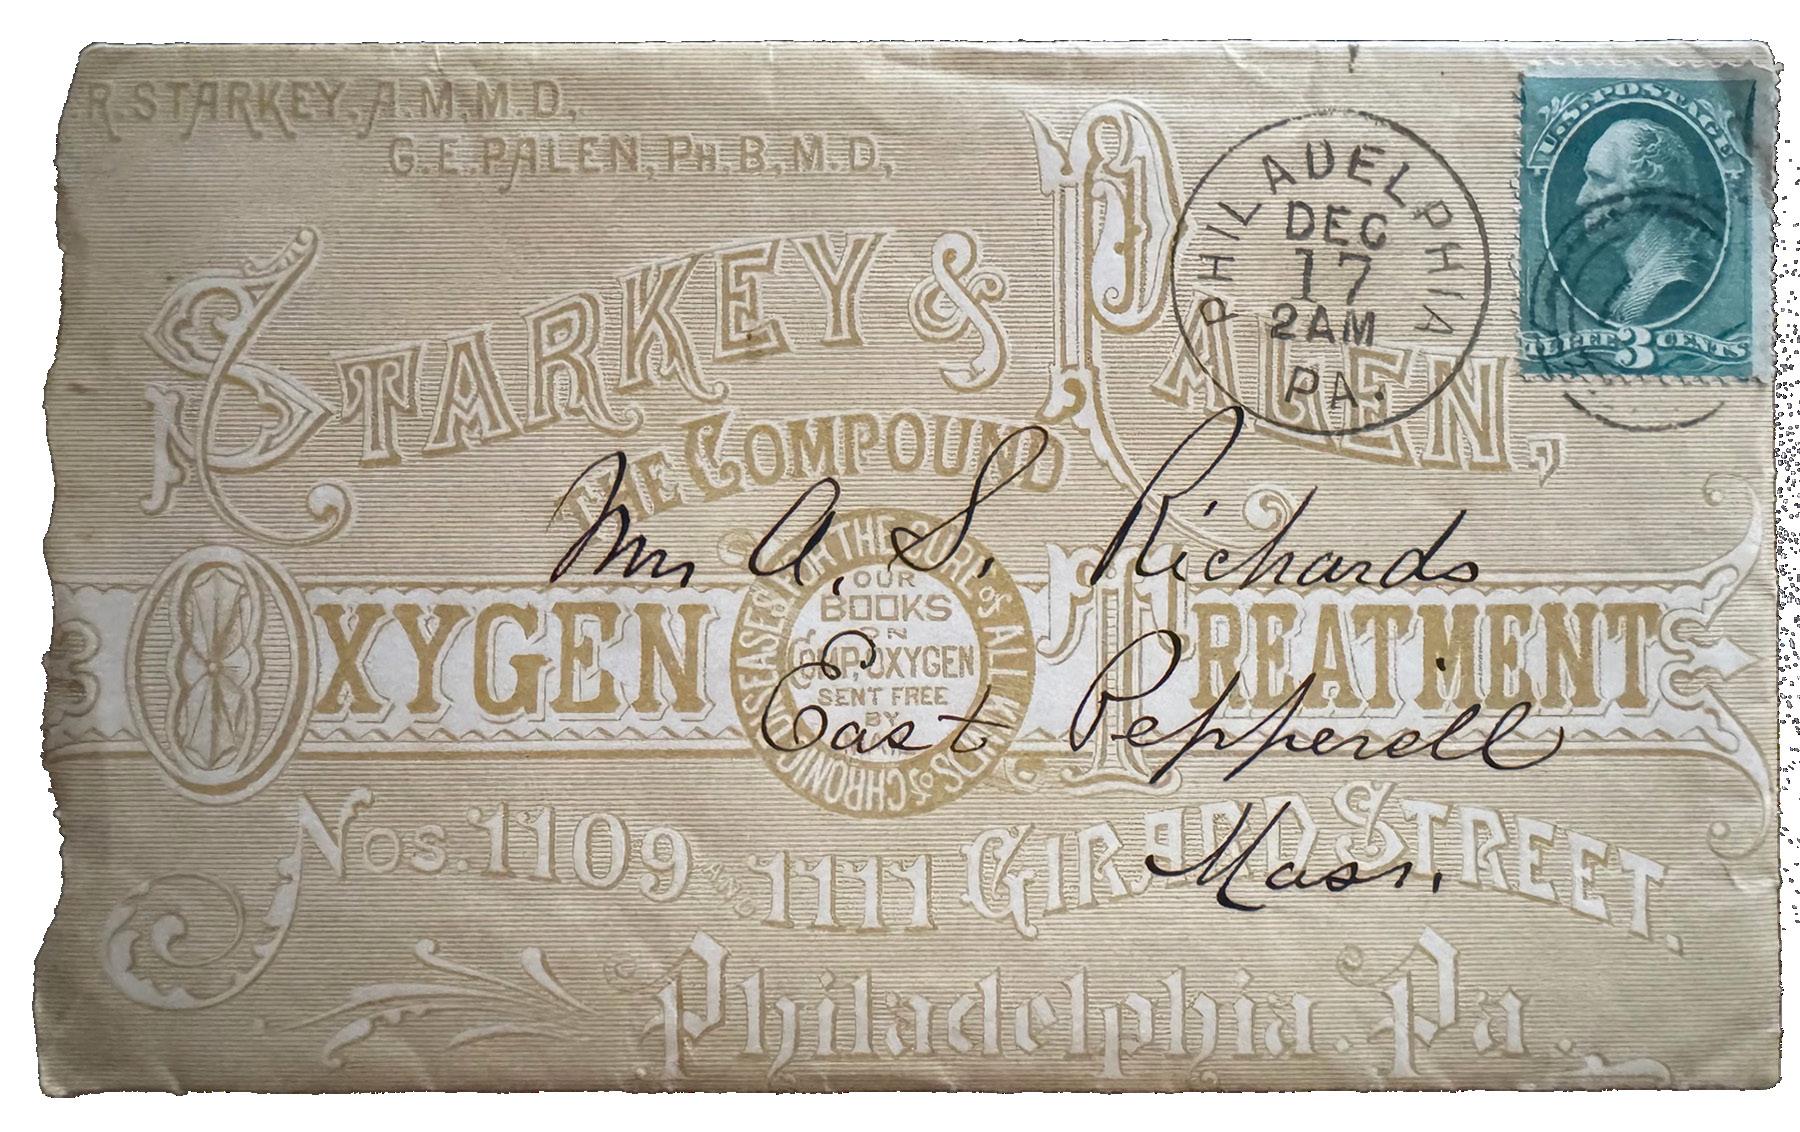 R. STARKEY, A. M. M. D.,
G. E. PALEN, PH. B., M. D.,
STARKEY & PALEN,
THE COMPOUND
OXYGEN TREATMENT
FOR THE CURE OF ALL KINDS OF CHRONIC DISEASES
OUR
BOOKS
ON
COMP. OXYGEN
SENT FREE
BY
NOS. 1109 AND 1111 GIRARD STREET.
Philadelphia. Pa.
PHILADELPHIA
DEC
17
2AM
PA.
U.S. POSTAGE
THREE 3 CENTS
Mr A. S. Richards
East Pepperell
Mass.